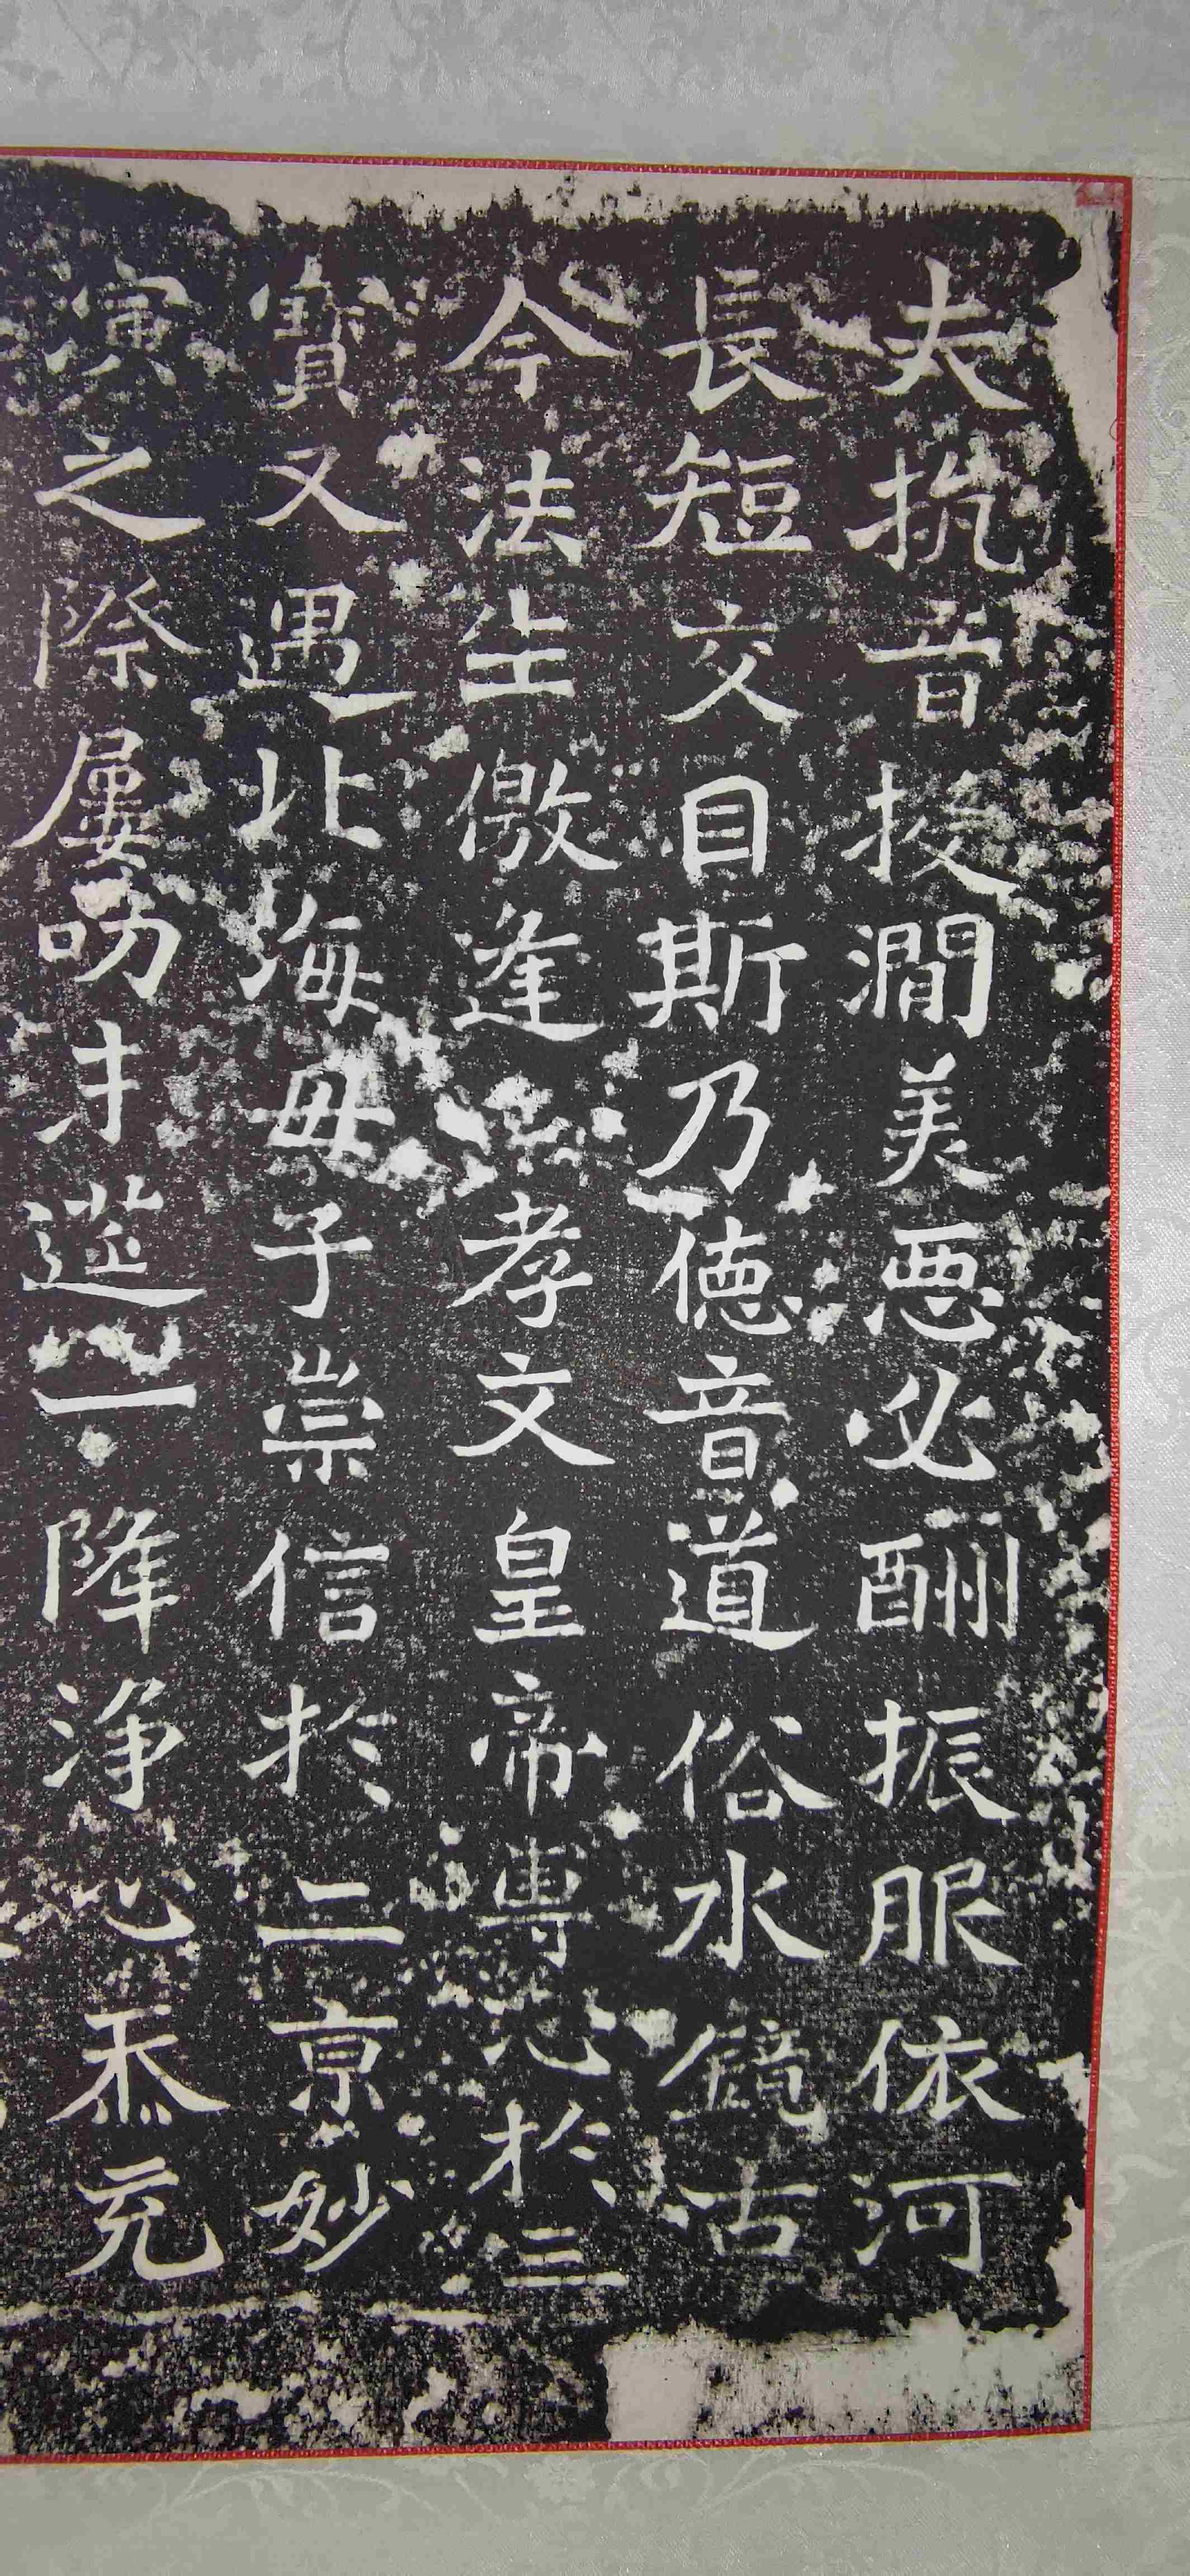 夫抗音投澗美惡必酬振服依河
長短交目斯乃德音道俗水鏡古
今法生儌逢孝文皇帝專心於三
寶又遇北海母子崇信於二京妙
演之際屢叨才筵一降淨心忝充